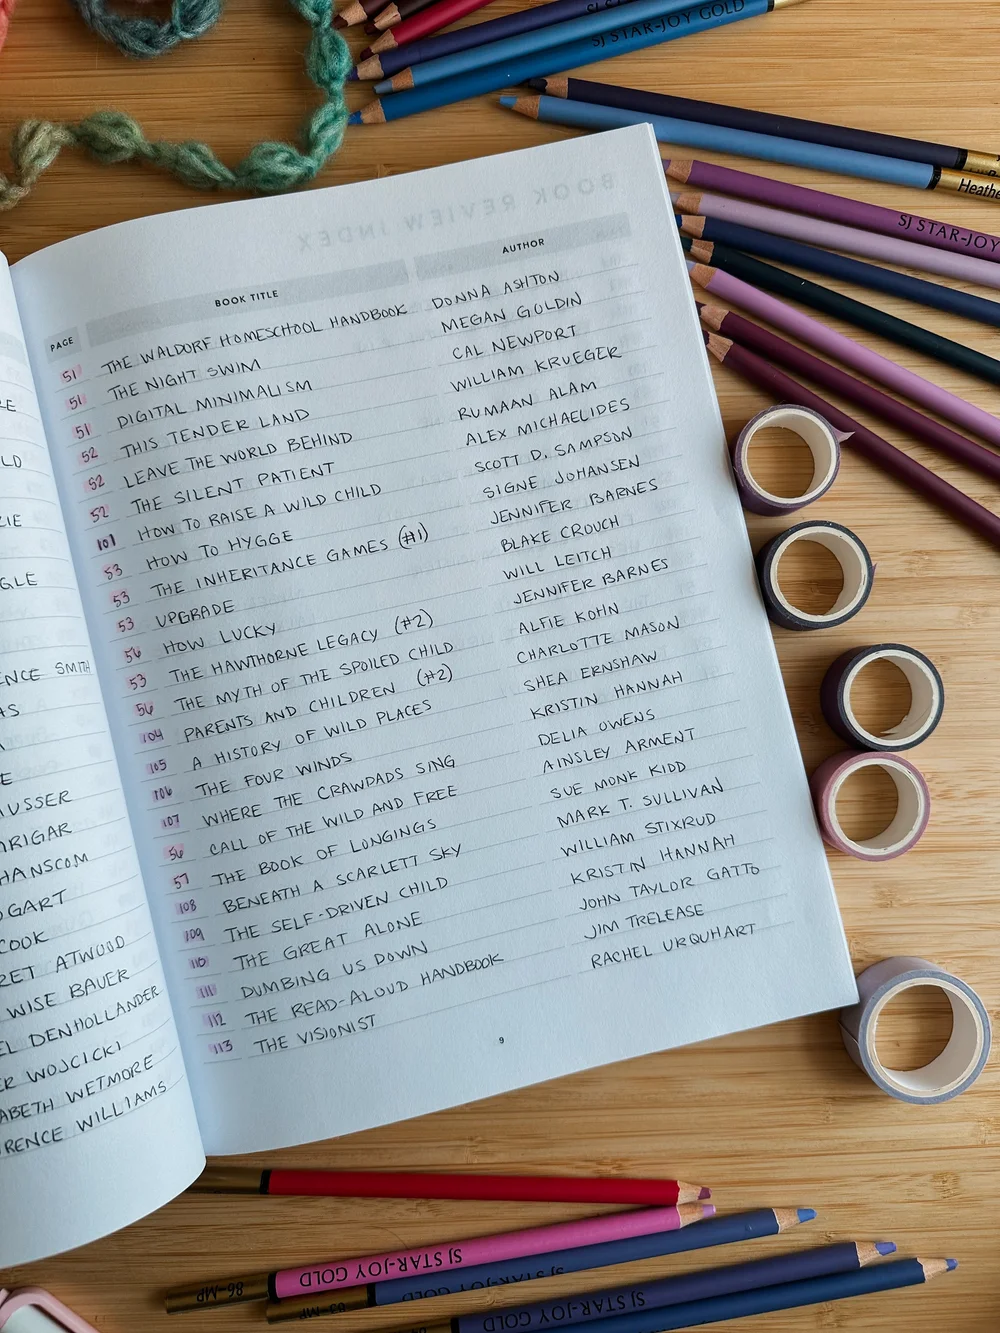 BOOK REVIEW INDEX
PAGE BOOK TITLE AUTHOR
51 THE WALDORF HOMESCHOOL HANDBOOK DONNA ASHTON
51 THE NIGHT SWIM MEGAN GOLDIN
51 DIGITAL MINIMALISM CAL NEWPORT
52 THIS TENDER LAND WILLIAM KRUEGER
52 LEAVE THE WORLD BEHIND RUMAAN ALAM
52 THE SILENT PATIENT ALEX MICHAELIDES
101 HOW TO RAISE A WILD CHILD SCOTT D. SAMPSON
53 HOW TO HYGGE SIGNE JOHANSEN
53 THE INHERITANCE GAMES (#1) JENNIFER BARNES
53 UPGRADE BLAKE CROUCH
56 HOW LUCKY WILL LEITCH
53 THE HAWTHORNE LEGACY (#2) JENNIFER BARNES
56 THE MYTH OF THE SPOILED CHILD ALFIE KOHN
104 PARENTS AND CHILDREN (#2) CHARLOTTE MASON
105 A HISTORY OF WILD PLACES SHEA ERNSHAW
106 THE FOUR WINDS KRISTIN HANNAH
107 WHERE THE CRAWDADS SING DELIA OWENS
56 CALL OF THE WILD AND FREE AINSLEY ARMENT
57 THE BOOK OF LONGINGS SUE MONK KIDD
108 BENEATH A SCARLETT SKY MARK T. SULLIVAN
109 THE SELF-DRIVEN CHILD WILLIAM STIXRUD
110 THE GREAT ALONE KRISTIN HANNAH
111 DUMBING US DOWN JOHN TAYLOR GATTO
112 THE READ-ALOUD HANDBOOK JIM TRELEASE
113 THE VISIONIST RACHEL URQUHART
9
RE
LD
ZIE
GLE
ENCE SMITH
AS
E
AUSSER
ARIGAR
HANSCOM
OGART
COOK
RET ATWOOD
WISE BAUER
EL DENHOLLANDER
ER WOJCICKI
ABETH WETMORE
RENCE WILLIAMS
SJ STAR-JOY GOLD
Heathe
SJ STAR-JOY
86-MP SJ STAR-JOY GOLD
SJ STAR-JOY GOLD
SJ STAR-JOY GOLD